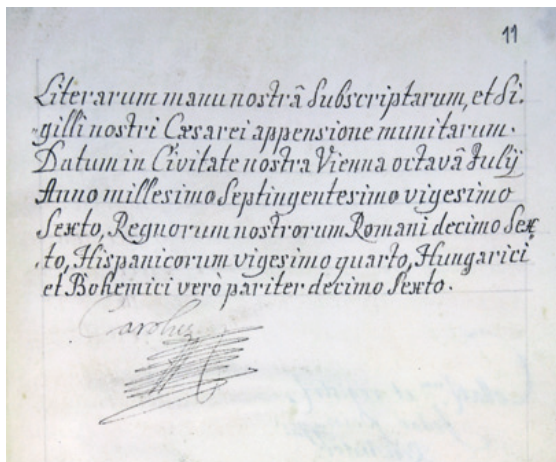 11
Literarum manu nostrâ Subscriptarum, et Si.
gilli nostri Cæsarei appensione munitarum.
Datum in Civitate nostra Vienna octavâ Julÿ
Anno millesimo Septingentesimo vigesimo
Sexto, Regnorum nostrorum Romani decimo Sex
to, Hispanicorum vigesimo quarto, Hungarici
et Bohemici verò pariter decimo Sexto.
Carolus